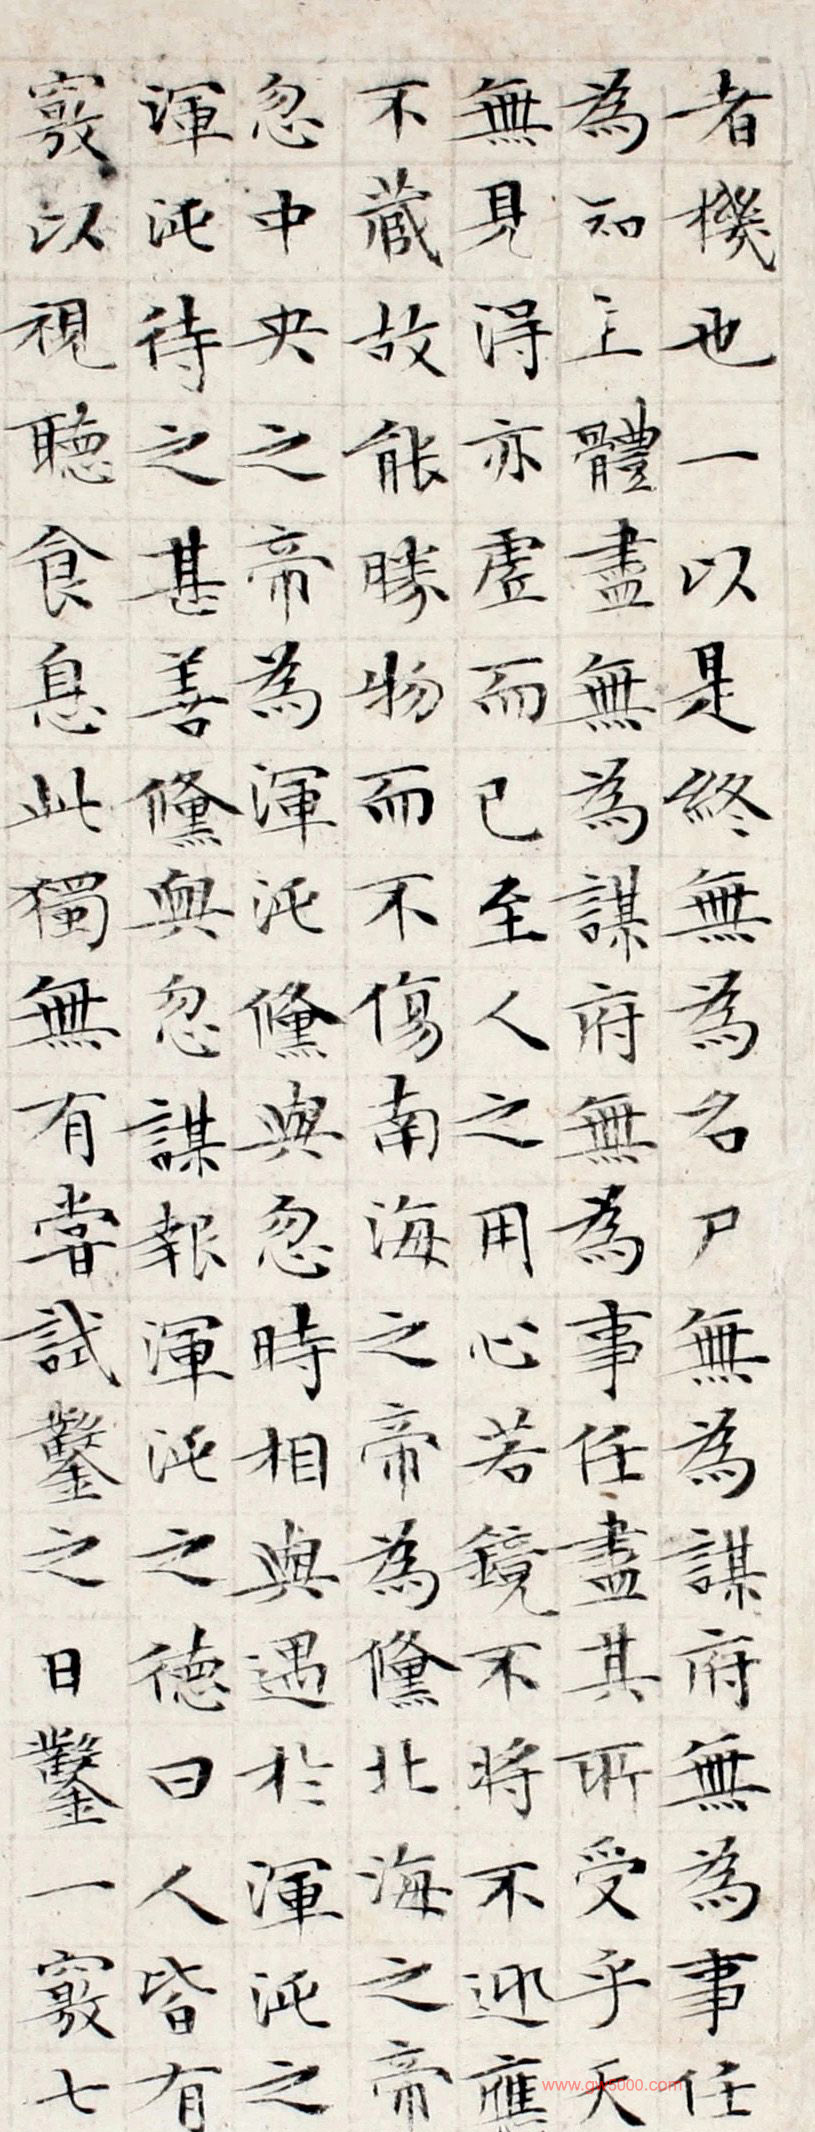 者機也一以是終無為名尸無為謀府無為事任
為知主體盡無為謀府無為事任盡其所受乎天
無見得亦虛而已至人之用心若鏡不將不迎應
不藏故能勝物而不傷南海之帝為儵北海之帝
忽中央之帝為渾沌儵與忽時相與遇於渾沌之
渾沌待之甚善儵與忽謀報渾沌之德曰人皆有
竅以視聽食息此獨無有嘗試鑿之日鑿一竅七
www.gw5000.com